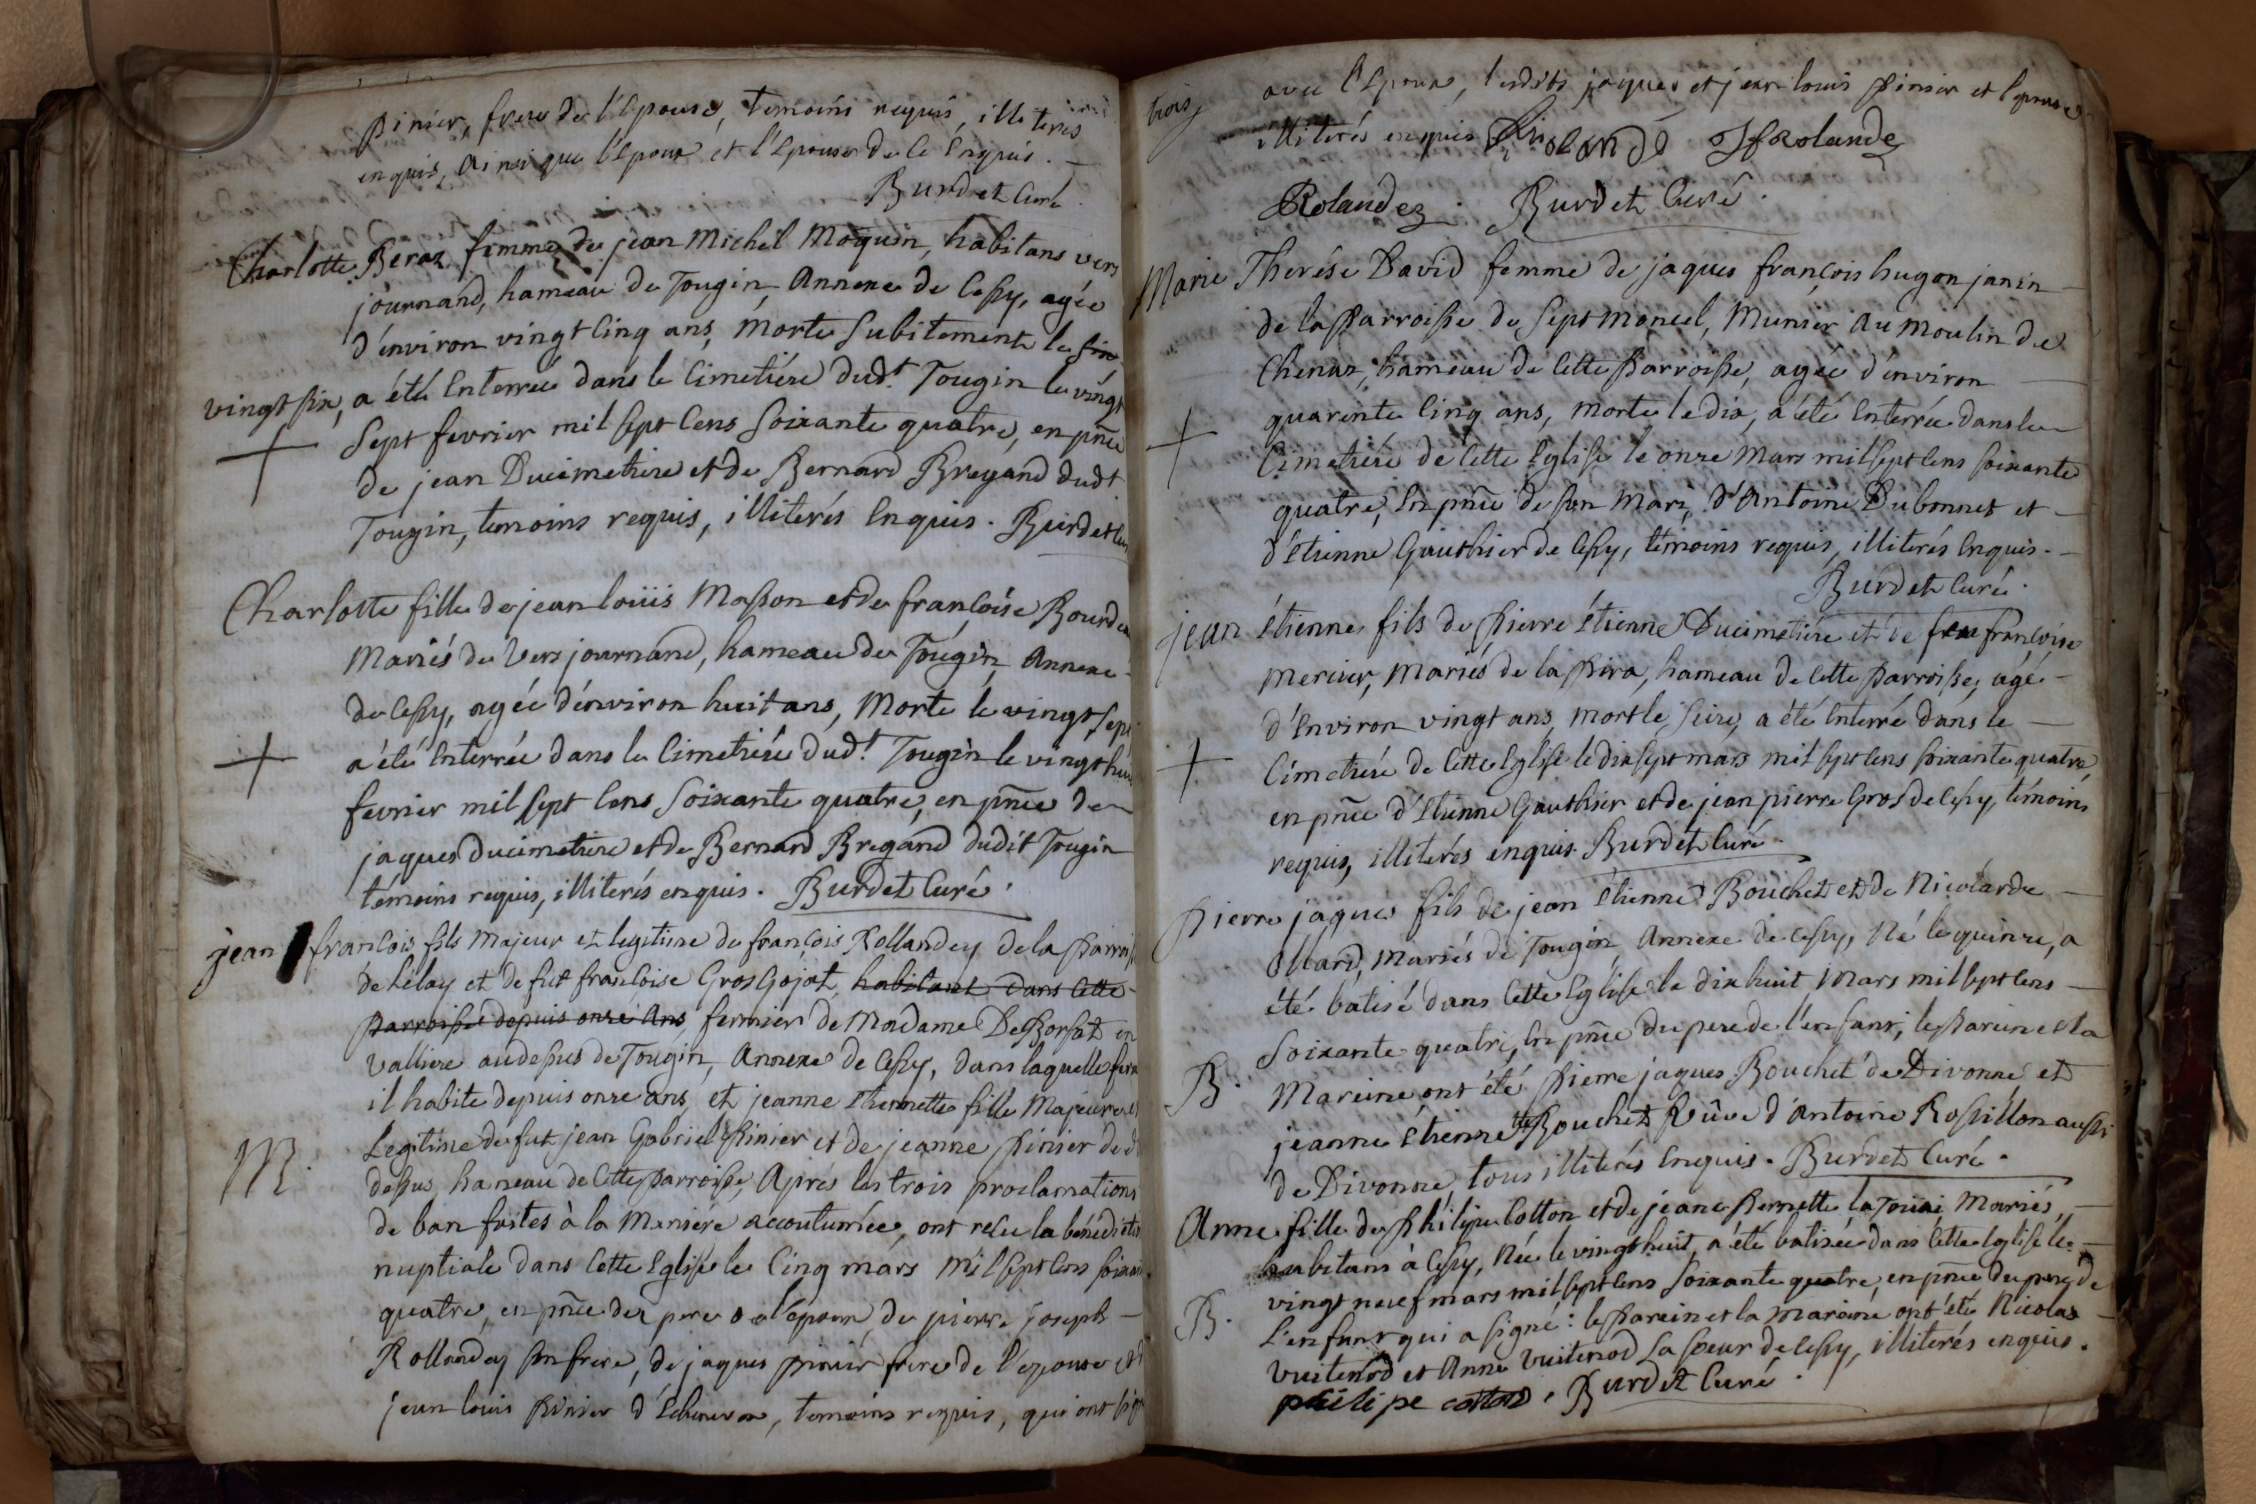 pinier, frere de l'épouse, temoins requis, illiterés
enquis, ainsi que l'Epoux et l'Epouse de ce Enquis.
Burdet Curé
Charlotte Beraz femme de jean Michel Moquin, habitans vers
journand, hameau de Tougin Annexe de Cessy, agée
d'environ vingt cinq ans, morte subitement le
vingt six, a été Enterrée dans le Cimetiére dudt. Tougin le vingt
sept fevrier mil sept Cens Soixante quatre, en pnce
de jean Ducimetiere et de Bernard Bregand dudt
Tougin, temoins requis, illiterés Enquis. Burdet Cu
Charlotte fille de jean loüis Masson et de françoise Bourde
Mariés de Vers journand, hameau de Tougin Annexe
de Cessy, agée d'environ huit ans, Morte le vingt sept
a été Enterrée dans le Cimetiére dudt. Tougin le vingt hui
fevrier mil sept Cens Soixante quatre, en pnce de
jaques ducimetiere et de Bernard Bregand dudit Tougin
témoins requis, illiterés enquis. Burdet Curé.
jean françois fils Majeur et legitime de françois Rollandey de la Parroiss
de Lelay et de fut françoise Gros Gojat, habitant dans cette
parroisse depuis onze ans, fermier de Madame De Borsat en
Valliere audessus de Tougin, Annexe de Cessy, dans laquelle ferm
il habite depuis onze ans, et jeanne Etiennette fille Majeure et
M. Legitime de fut jean Gabriel Pinier et de jeanne pinier de d
dessus hameau de Cette parroisse, Aprés les trois proclamations
de ban faites à la Maniére accoutumée, ont reçu la bénédictio
nuptiale dans Cette Eglise le Cinq mars Mil sept Cens Soixan
quatre, en pnce des pere de l'époux, de pierre joseph
Rollandey son frere, de jaques pinier frere de l'epouse et d
jean louis pinier d'Echenevex, temoins requis, qui ont sig
trois
avec l'Epoux, lesdits jaques et jean louis Pinier et l'epouse
illiterés enquis Rolande JfRolande
Rolandez. Burdet Curé.
Marie Therése David femme de jaques françois hugon janin
de la Parroisse de Septmoncel, Munier Au Moulin de
Chenaz, hameau de Cette Parroisse, agée d'environ
quarente Cinq ans, morte le dix, a été Enterrée dans le
Cimetiére de Cette Eglise le onze Mars mil sept Cens Soixante
quatre, En pnce de son Mari, d'Antoine Dubonnet et
d'Etienne Gauthier de Cessy, témoins requis, illiterés Enquis.
Burdet Curé.
jean Étienne, fils de Pierre Étienne Ducimetiére et de feu françoise
Mercier, Mariés de la Pira, hameau de Cette Parroisse, agé
d'Environ vingt ans, mort le seize, a été Enterré dans le
Cimetiére de Cette Eglise le dix sept mars mil sept Cens Soixante quatre,
en pnce d'Etienne Gauthier et de jean pierre Gros de Cessy, témoins
requis, illiterés enquis. Burdet Curé.
Pierre jaques fils de jean Étienne Bouchet et de Nicolarde
Ollard, Mariés de Tougin Annexe de Cessy, Né le quinze, a
été batisé dans Cette Eglise le dix huit Mars mil sept Cens
Soixante quatre, En pnce du pere de l'enfant; le Parein et la
B. Mareine ont été Pierre jaques Bouchet de Divonne et
jeanne Etiennette Bouchet Veuve d'Antoine Rossillon aussi
de Divonne, tous illiterés Enquis. Burdet Curé.
Anne fille de Philipe Cotton et de jeane Pernette la Mariés,
habitans à Cessy, Née le vingt huit, a été batisée dans Cette Eglise le
vingt neuf mars mil sept Cens Soixante quatre, en pnce du pere de
B. L'enfant qui a signé: le Parein et la Mareine ont été Nicolas
Vuitenod et Anne Vuitenod sa Sœur de Cessy, illiterés enquis.
philipe cotton. Burdet Curé.